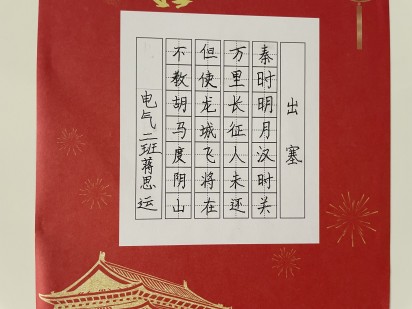 出塞
秦时明月汉时关
万里长征人未还
但使龙城飞将在
不教胡马度阴山
电气二班蒋思运